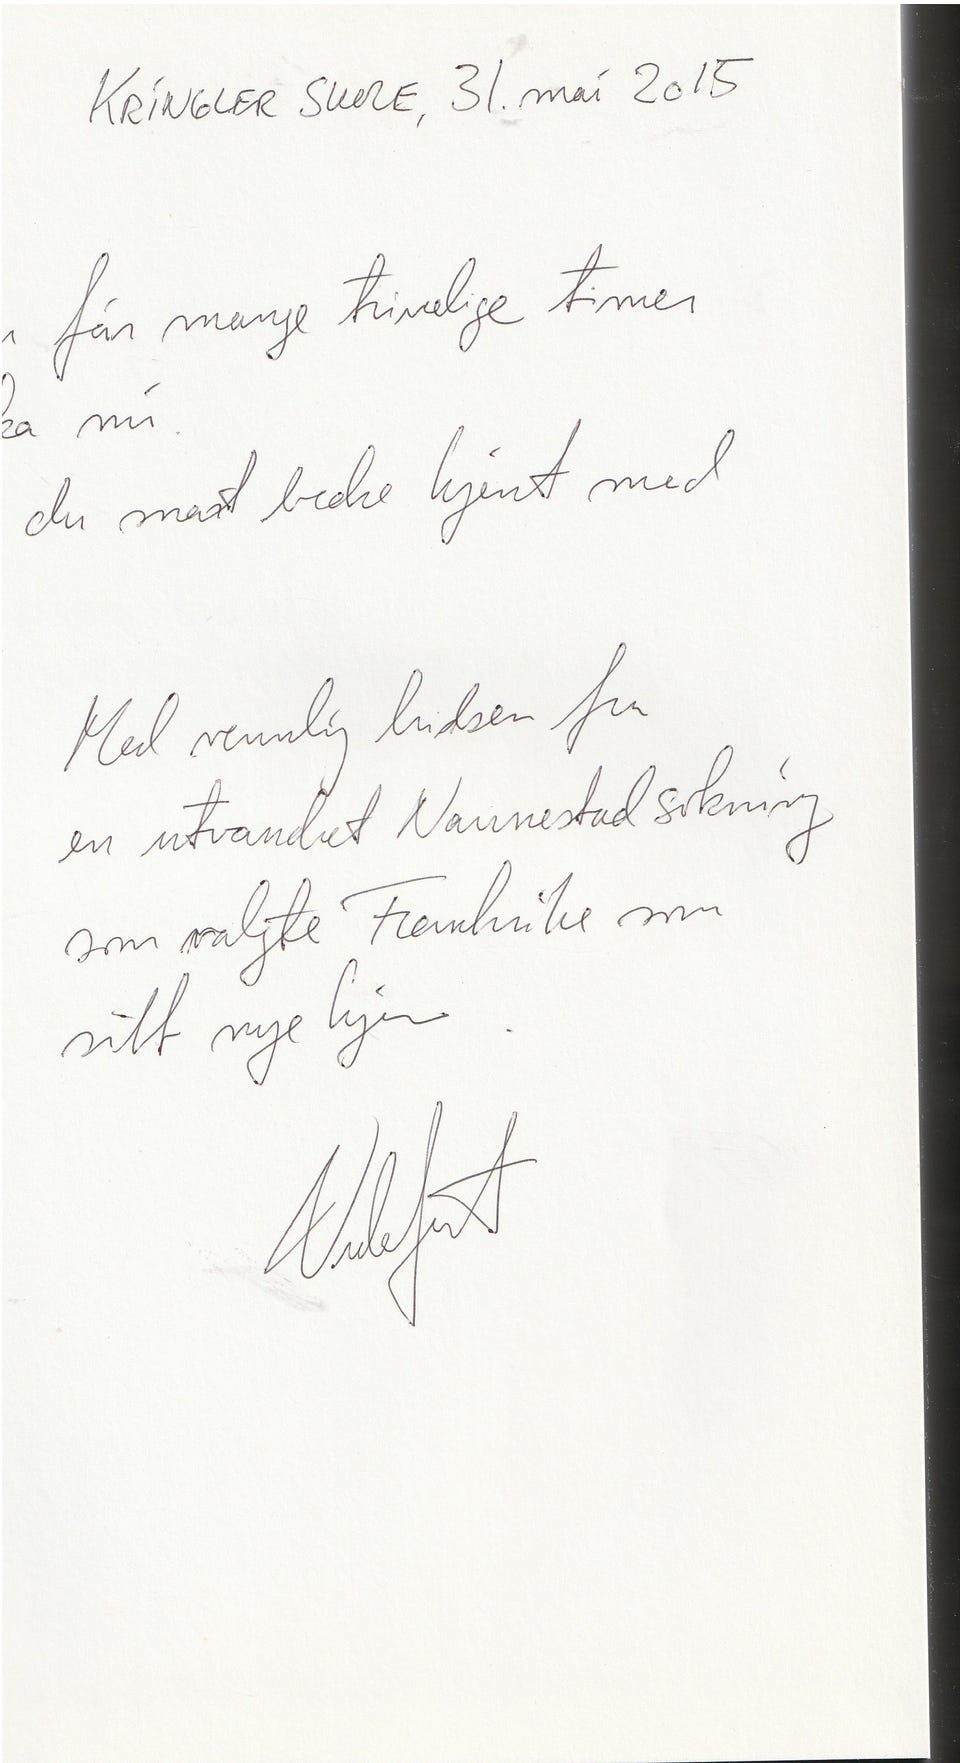 KRINGLER SKOLE, 31. mai 2015
får mange trivelige timer
ka mi.
du mast bedre kjent med
Med vennlig hilsen fra
en utvandret Nannestad sokning
som valgte Frankrike som
sitt nye hjem.